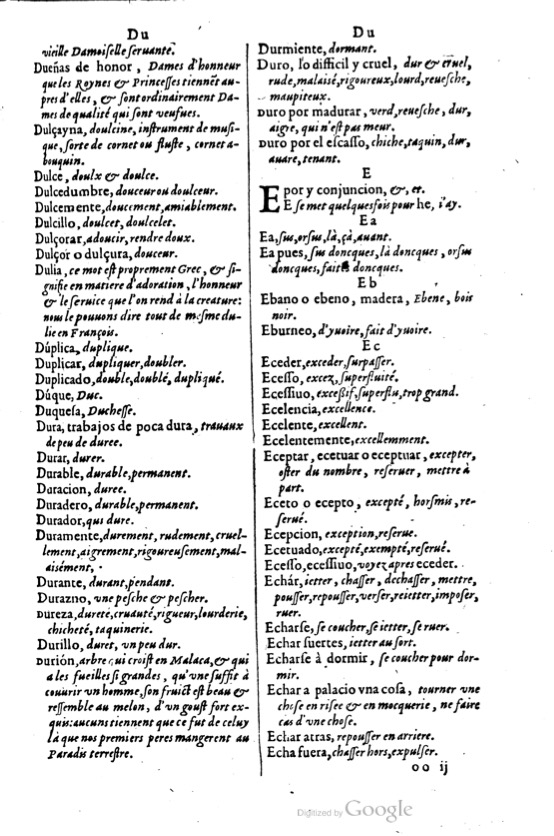 Du
vieille Damoiselle seruante.
Dueñas de honor, Dames d'honneur
que les Roynes & Princesses tiennēt au-
pres d'elles, & sont ordinairement Da-
mes de qualité qui sont veufues.
Dulçayna, doulcine, instrument de musi-
que, sorte de cornet ou fluste, cornet a-
bouquin.
Dulce, doulx & doulce.
Dulcedumbre, douceur ou douleur.
Dulcemente, doucement, amiablement.
Dulcillo, doulcet, doulcelet.
Dulçorar, adoucir, rendre doux.
Dulçor o dulçura, douceur.
Dulia, ce mot est proprement Grec, & si-
gnifie en matiere d'adoration, l'honneur
& le seruice que l'on rend à la creature:
nous le pouuons dire tout de mesme du-
lie en François.
Dúplica, duplique.
Duplicar, dupliquer, doubler.
Duplicado, double, doublé, dupliqué.
Dúque, Duc.
Duquesa, Duchesse.
Dura, trabajos de poca dura, trauaux
de peu de duree.
Durar, durer.
Durable, durable, permanent.
Duracion, duree.
Duradero, durable, permanent.
Durador, qui dure.
Duramente, durement, rudement, cruel-
lement, aigrement, rigoureusement, mal-
aisément,
Durante, durant, pendant.
Durazno, vne pesche & pescher.
Dureza, dureté, cruauté, rigueur, lourderie,
chicheté, taquinerie.
Durillo, duret, vn peu dur.
Durión, arbre qui croist en Malaca, & qui
a les fueilles si grandes, qu'vne suffit à
couurir vn homme, son fruict est beau &
ressemble au melon, d'vn goust fort ex-
quis: aucuns tiennent que ce fut de celuy
là que nos premiers peres mangerent au
Paradis terrestre.
Du
Durmiente, dormant.
Duro, lo difficil y cruel, dur & cruel,
rude, malaisé, rigoureux, lourd, reuesche,
maupiteux.
Duro por madurar, verd, reuesche, dur,
aigre, qui n'est pas meur.
Duro por el escasso, chiche, taquin, dur,
auare, tenant.
E
E por y conjuncion, &, et.
E se met quelquesfois pour he, i'ay.
Ea
Ea, sus, orsus, là, çà, auant.
Ea pues, sus doncques, là doncques, orsus
doncques, fait doncques.
Eb
Ebano o ebeno, madera, Ebene, bois
noir.
Eburneo, d'yuoire, fait d'yuoire.
Ec
Eceder, exceder, surpasser.
Ecesso, excez, superfluité.
Ecessiuo, excessif, superflu, trop grand.
Ecelencia, excellence.
Ecelente, excellent.
Ecelentemente, excellemment.
Eceptar, ecetuar o eceptuar, excepter,
oster du nombre, reseruer, mettre à
part.
Eceto o ecepto, excepté, horsmis, re-
serué.
Ecepcion, exception, reserue.
Ecetuado, excepté, exempté, reserué.
Ecesso, ecessiuo, voyez apres eceder.
Echár, ietter, chasser, dechasser, mettre,
pousser, repousser, verser, reietter, imposer,
ruer.
Echarse, se coucher, se ietter, se ruer.
Echar suertes, ietter au sort.
Echarse à dormir, se coucher pour dor-
mir.
Echar a palacio vna cosa, tourner vne
chose en risee & en mocquerie, ne faire
cas d'vne chose.
Echar atras, repousser en arriere.
Echa fuera, chasser hors, expulser.
oo ij
Digitized by Google